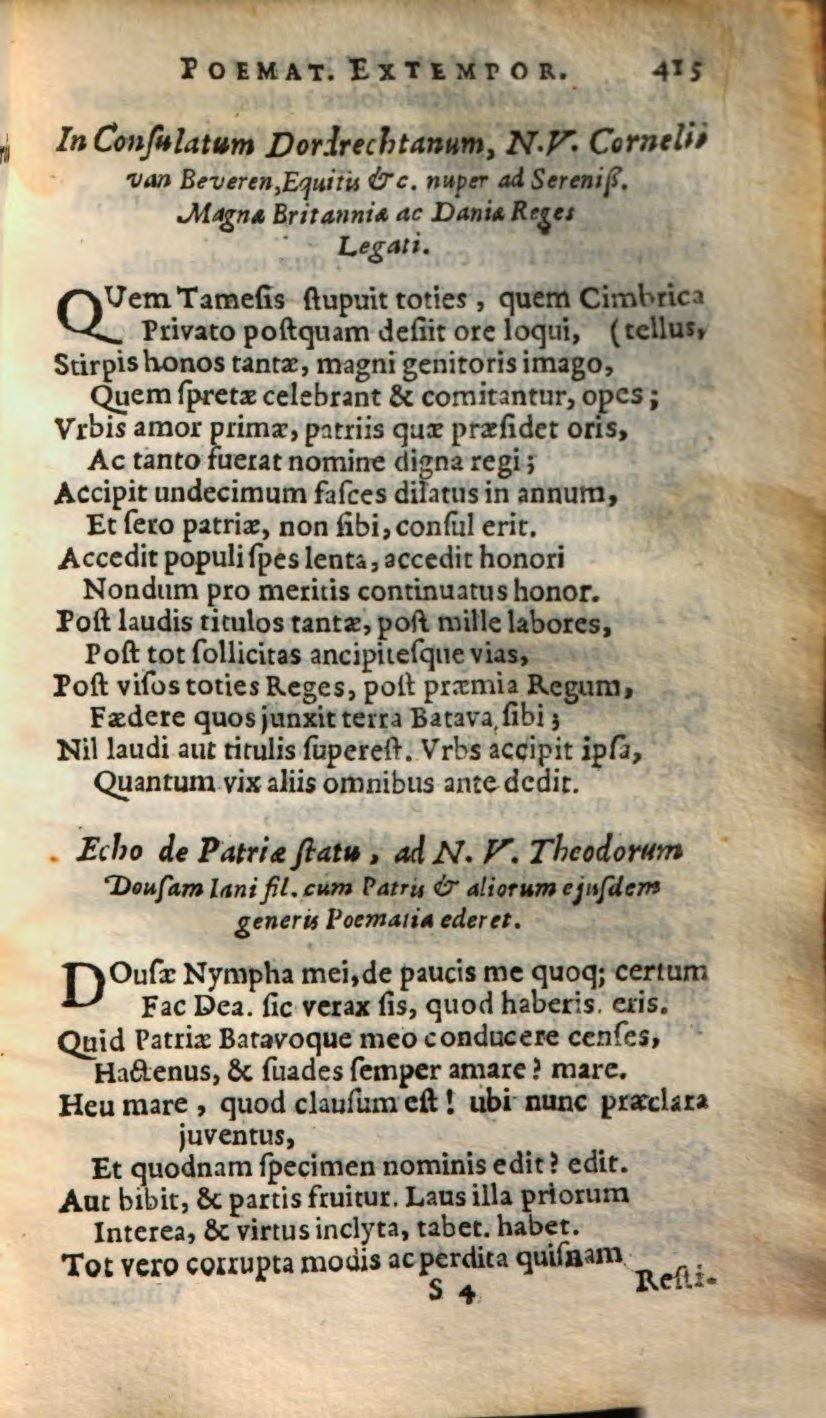 POEMAT. EXTEMPOR. 415
In Conſulatum Dordrechtanum, N.V. Cornelii
van Beveren, Equitis &c. nuper ad Sereniſſ.
Magnæ Britanniæ ac Daniæ Reges
Legati.
QUem Tameſis ſtupuit toties, quem Cimbrica
Privato poſtquam deſiit ore loqui, (tellus,
Stirpis honos tantæ, magni genitoris imago,
Quem ſpretæ celebrant & comitantur, opes;
Vrbis amor primæ, patriis quæ præſidet oris,
Ac tanto fuerat nomine digna regi;
Accipit undecimum faſces dilatus in annum,
Et ſero patriæ, non ſibi, conſul erit.
Accedit populi ſpes lenta, accedit honori
Nondum pro meritis continuatus honor.
Poſt laudis titulos tantæ, poſt mille labores,
Poſt tot ſollicitas ancipiteſque vias,
Poſt viſos toties Reges, poſt præmia Regum,
Fædere quos junxit terra Batava, ſibi;
Nil laudi aut titulis ſupereſt. Vrbs accipit ipſa,
Quantum vix aliis omnibus ante dedit.
Echo de Patriæ ſtatu, ad N. V. Theodorum
Douſam Iani fil. cum Patris & aliorum ejuſdem
generis Poematia ederet.
DOuſæ Nympha mei, de paucis me quoq; certum
Fac Dea. ſic verax ſis, quod haberis. eris.
Quid Patriæ Batavoque meo conducere cenſes,
Hactenus, & ſuades ſemper amare? mare.
Heu mare, quod clauſum eſt! ubi nunc præclara
juventus,
Et quodnam ſpecimen nominis edit? edit.
Aut bibit, & partis fruitur. Laus illa priorum
Interea, & virtus inclyta, tabet. habet.
Tot vero corrupta modis ac perdita quiſnam
S 4 Reſti-